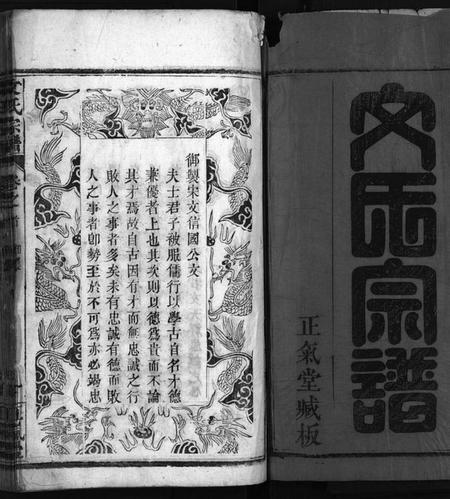 文氏宗譜
正氣堂藏板
御製宋文信國公文
夫士君子被服儒行以學古自名才德
兼優者上也其次則以德為貴而不論
其才焉故自古因有才而無忠誠之行
敗人之事者多矣未有忠誠有德而敗
人之事者卽勢至於不可爲亦必竭忠